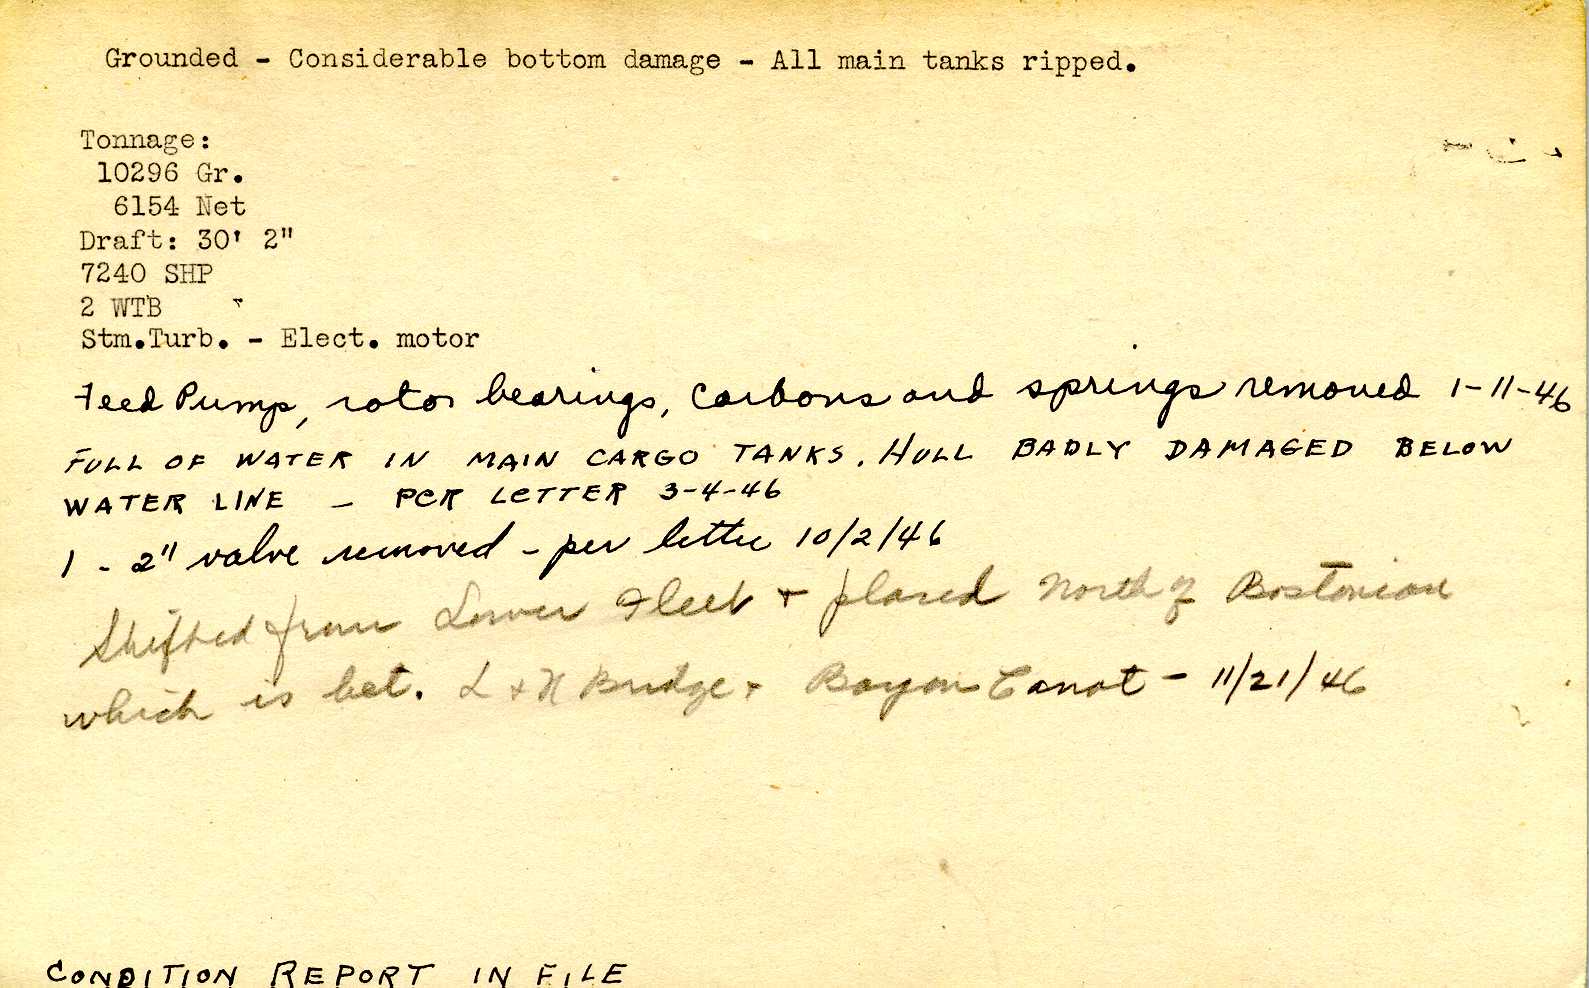 Grounded - Considerable bottom damage - All main tanks ripped.
Tonnage:
10296 Gr.
6154 Net
Draft: 30' 2"
7240 SHP
2 WTB
Stm.Turb. - Elect. motor
Feed Pump, rotor bearings, Carbons and springs removed 1-11-46
FULL OF WATER IN MAIN CARGO TANKS. HULL BADLY DAMAGED BELOW
WATER LINE - PER LETTER 3-4-46
1 - 2" valve removed - per letter 10/2/46
Shifted from Lower Fleet + placed North of Bostonian
which is bet. L + N Bridge + Bayou Canot - 11/21/46
CONDITION REPORT IN FILE